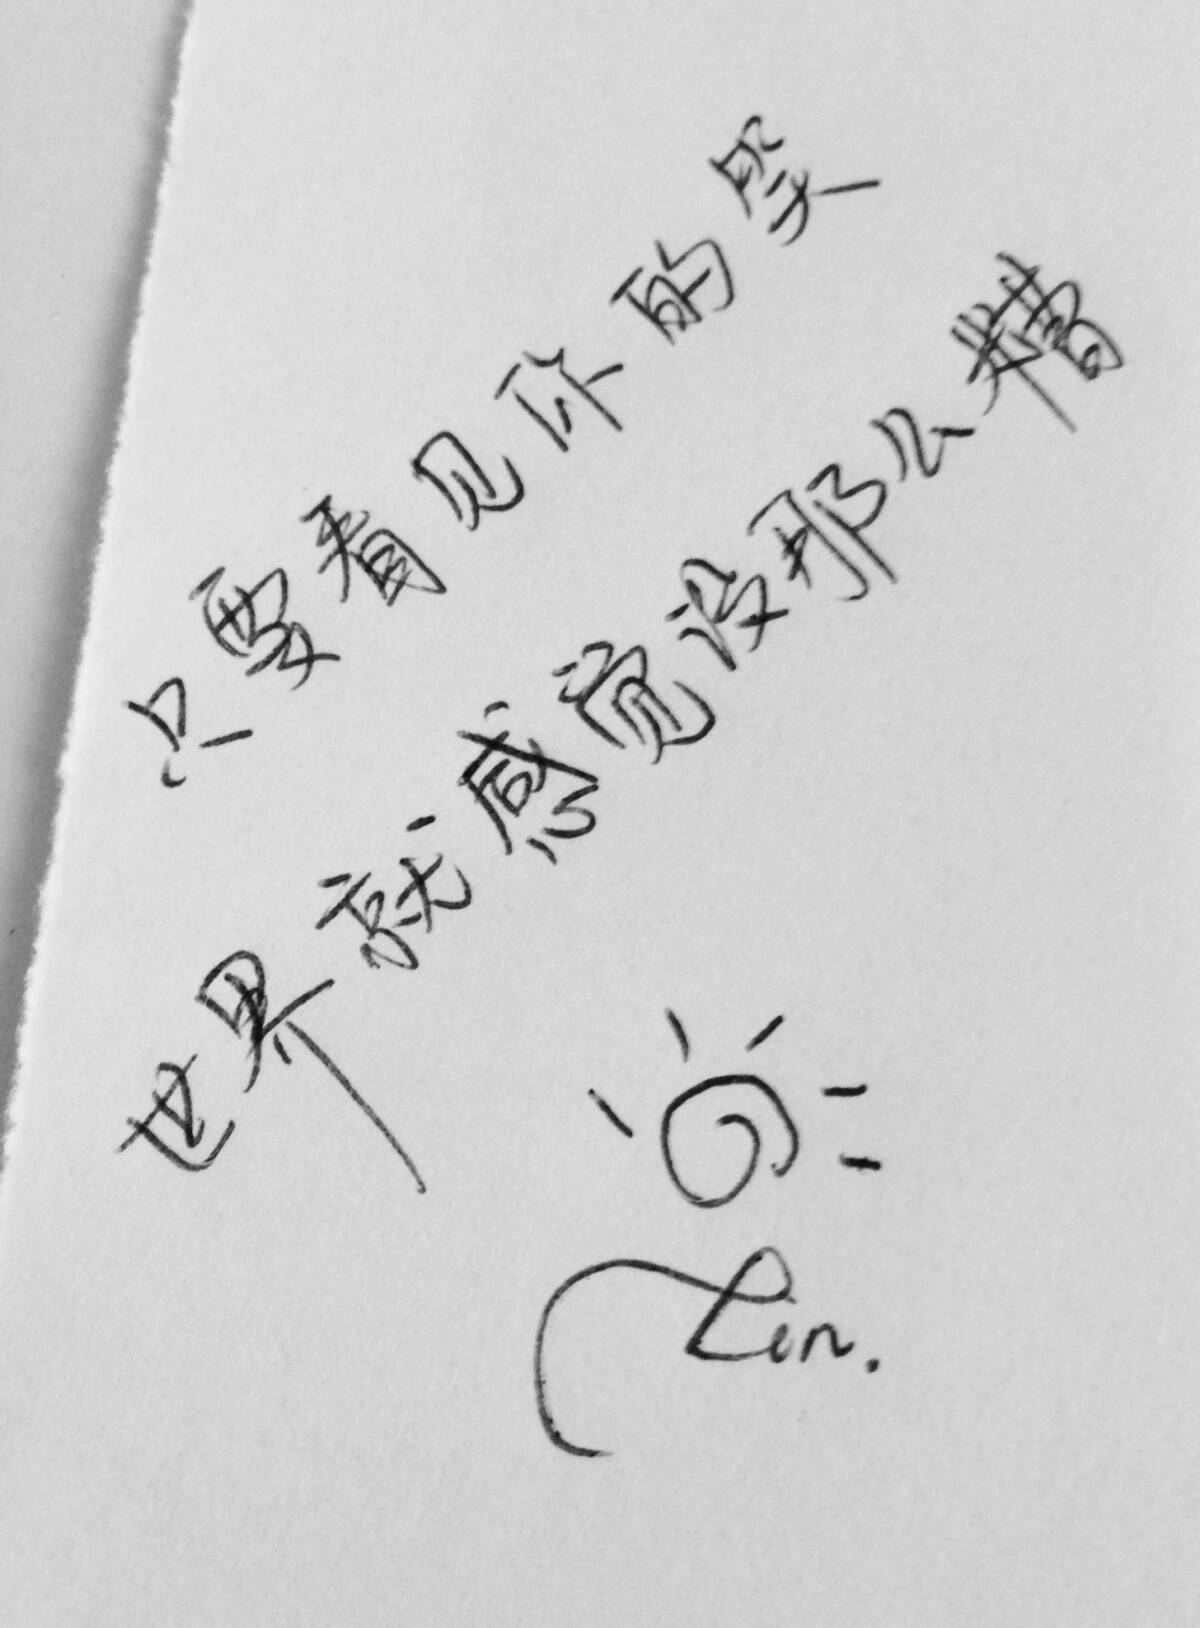 只要看见你的笑
世界就感觉没那么糟
Lin.